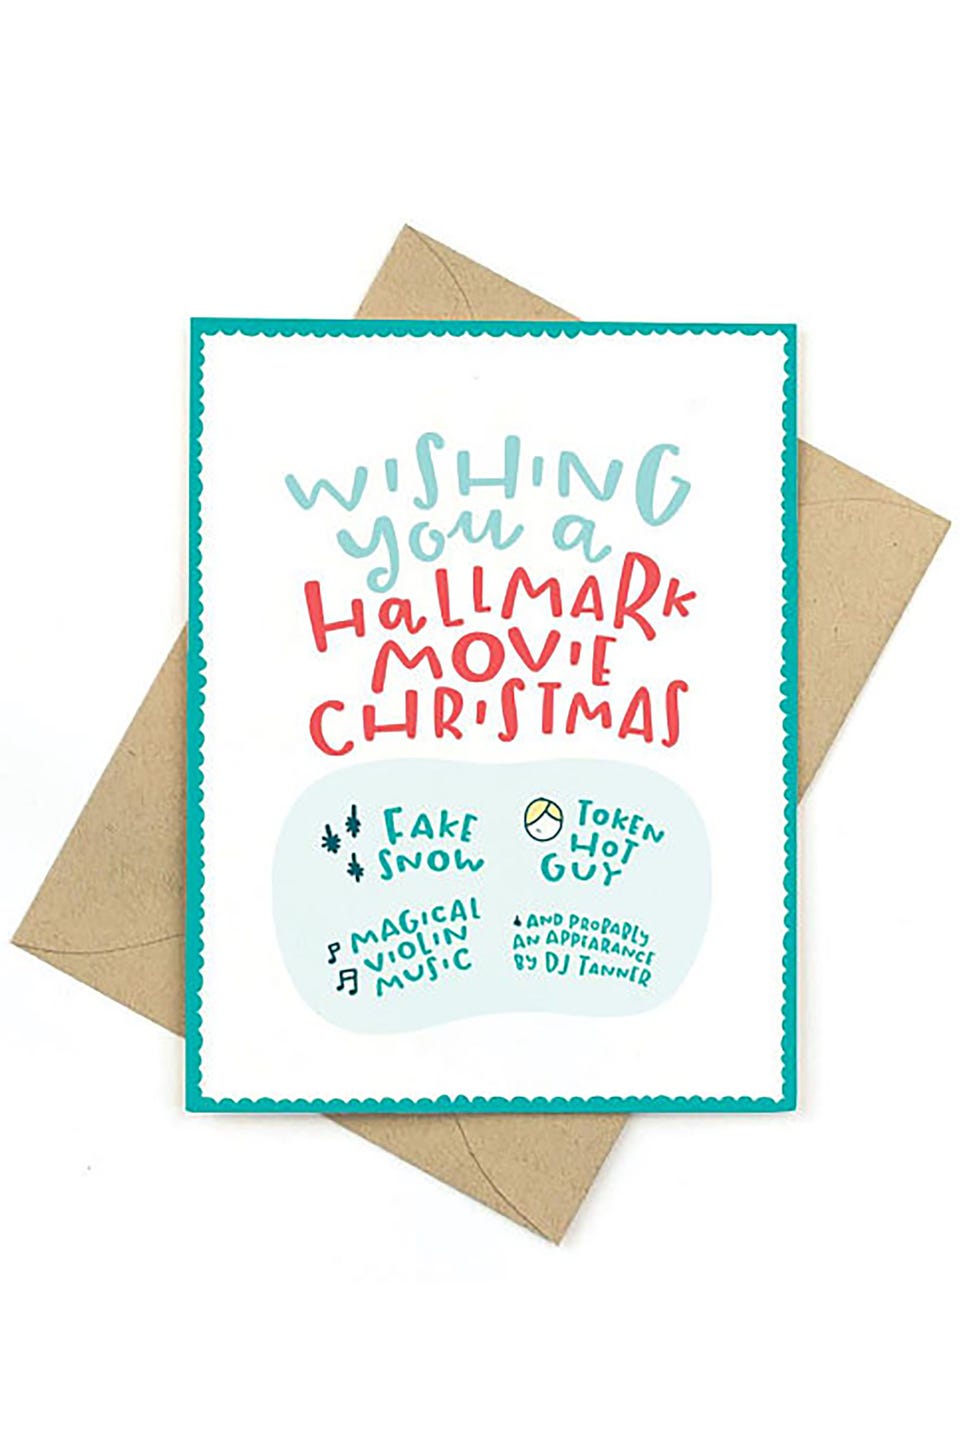 WISHING
you a
HaLLMARK
MOVIE
CHRISTMAS
FAKE
SNOW
TOKEN
HOT
GUY
MAGICAL
VIOLIN
MUSIC
AND PROBABLY
AN APPEARANCE
BY DJ TANNER